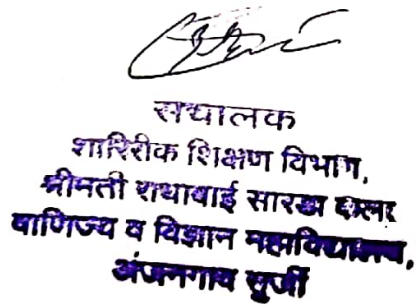 सचालक
शारिरीक शिक्षण विभाग,
श्रीमती राधाबाई सारडा कला
वाणिज्य व विज्ञान महाविद्यालय,
अंजनगाव सुर्जी